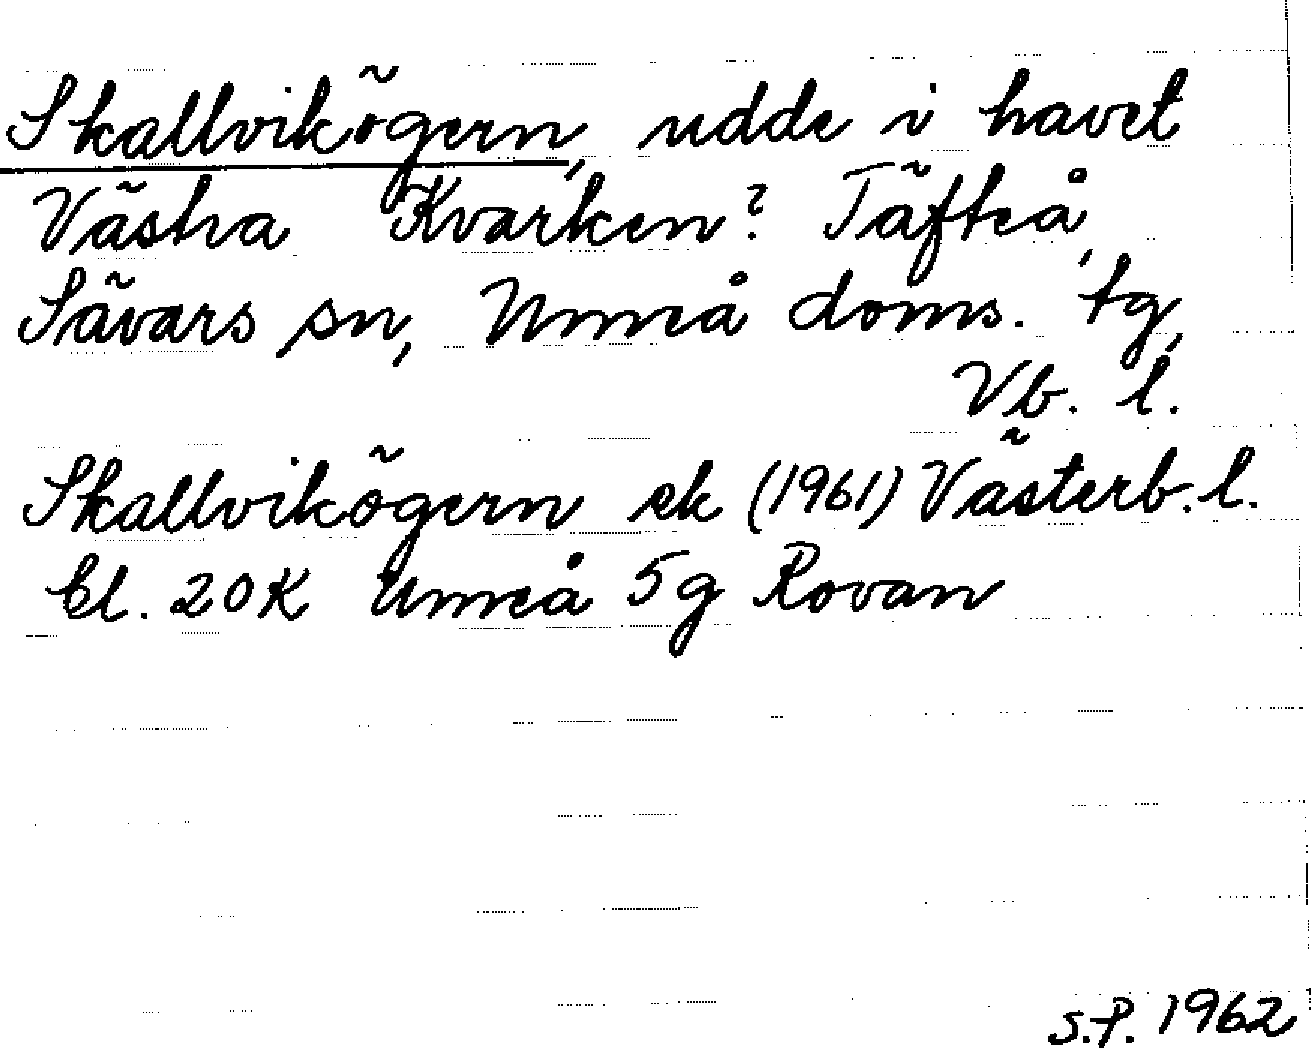 Skallvikögern, udde i havet
Västra Kvarken? Täfteå,
Sävars sn, Umeå doms. tg,
Vb. l.
Skallvikögern ek (1961) Västerb. l.
bl. 20K Umeå 5g Rovan
S.P. 1962